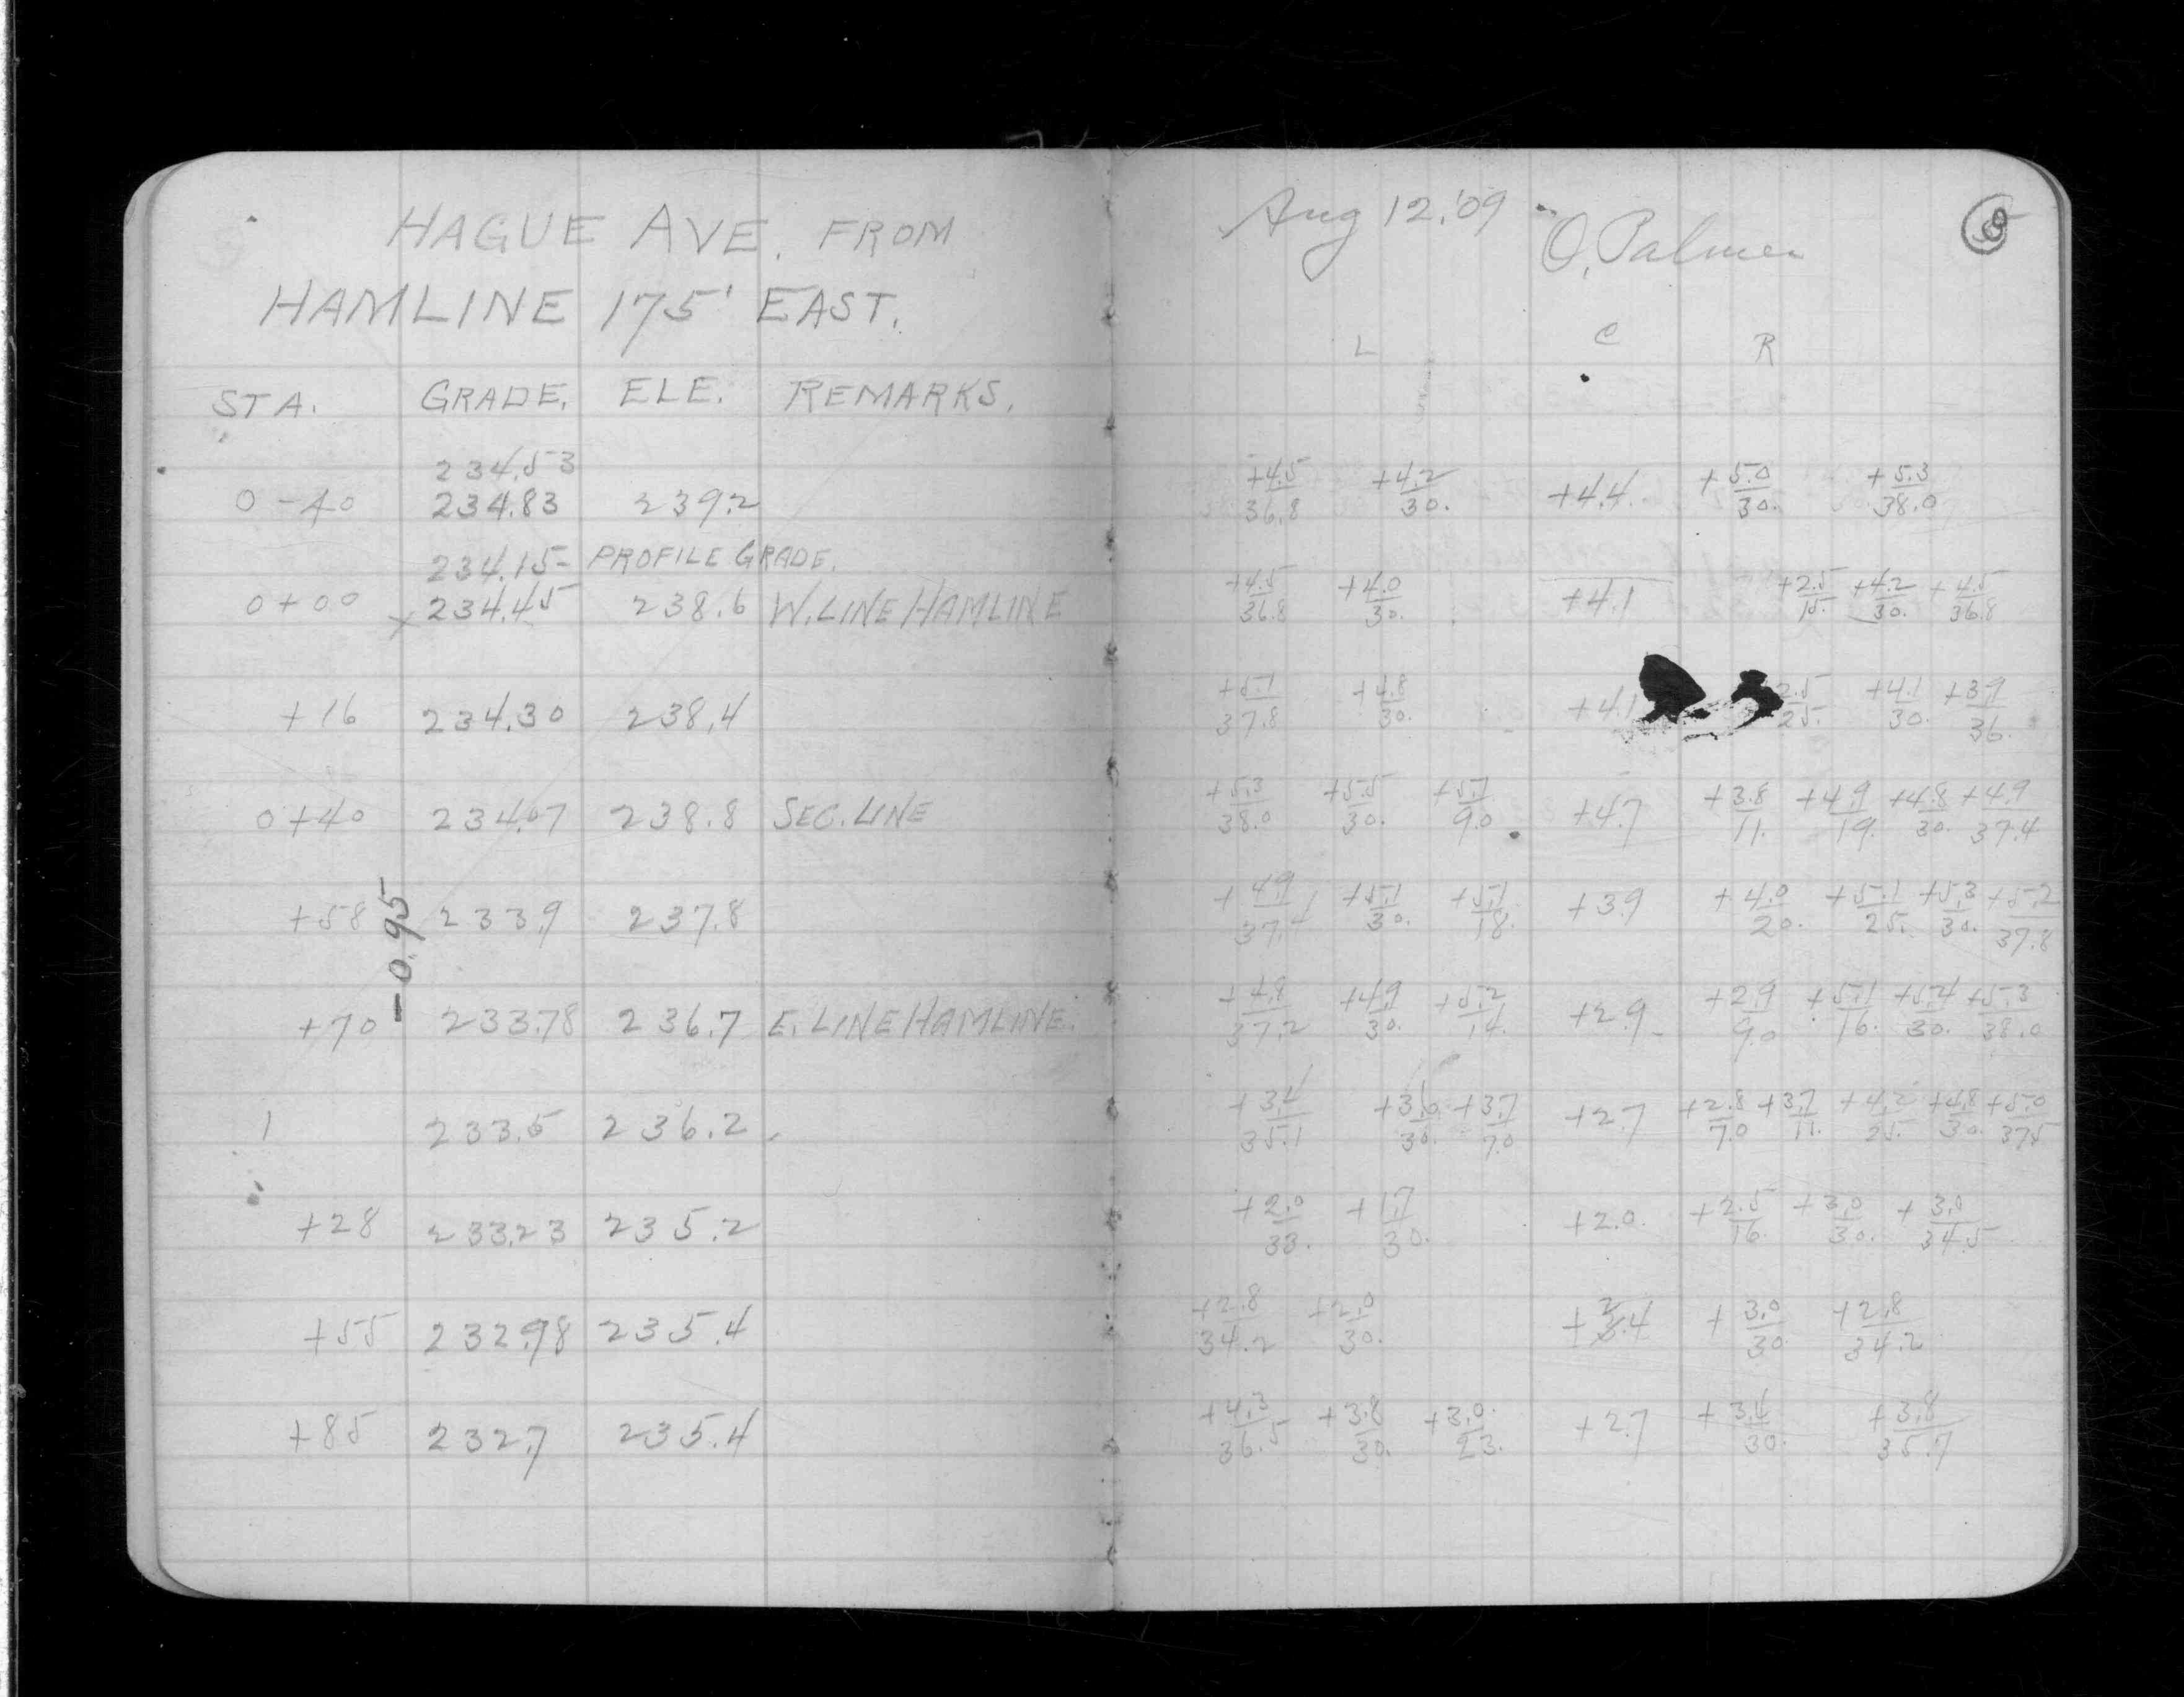 HAGUE AVE. FROM
HAMLINE 175' EAST.
STA. GRADE. ELE. REMARKS.
234.53
0-40 234.83 239.2
234.15- PROFILE GRADE.
0+00 x 234.45 238.6 W. LINE HAMLINE
+16 234.30 238.4
0+40 234.07 238.8 SEC. LINE
+58 233.9 237.8
-0.95
+70 233.78 236.7 E. LINE HAMLINE.
1 233.5 236.2
+28 233.23 235.2
+55 232.98 235.4
+85 232.7 235.4
Aug 12, '09 O. Palmer
L C R
+4.5 +4.2 +4.4 +5.0 +5.3
36.8 30. 30. 38.0
+4.5 +4.0 +4.1 +2.5 +4.2 +4.5
36.8 30. 15. 30. 36.8
+5.1 +4.8 +4.1 2.5 +4.1 +3.9
37.8 30. 25. 30. 36.
+5.3 +5.5 +5.7 +4.7 +3.8 +4.9 +4.8 +4.9
38.0 30. 9.0 11. 19. 30. 37.4
+4.9 +5.1 +5.1 +3.9 +4.0 +5.1 +5.3 +5.2
37.4 30. 18. 20. 25. 30. 37.8
+4.8 +4.9 +5.2 +2.9 +2.9 +5.1 +5.4 +5.3
37.2 30. 14. 9.0 16. 30. 38.0
+3.4 +3.6 +3.7 +2.7 +2.8 +3.7 +4.2 +4.8 +5.0
35.1 30. 7.0 7.0 11. 25. 30. 37.5
+2.0 +1.7 +2.0 +2.5 +3.0 +3.0
33. 30. 16. 30. 34.5
+2.8 +2.0 +2.4 +3.0 +2.8
34.2 30. 30 34.2
+4.3 +3.8 +3.0 +2.7 +3.4 +3.8
36.5 30. 23. 30. 35.7